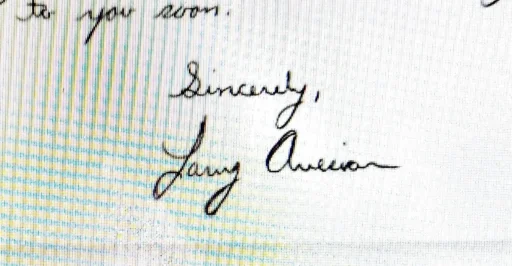 to you soon.
Sincerely,
Larry